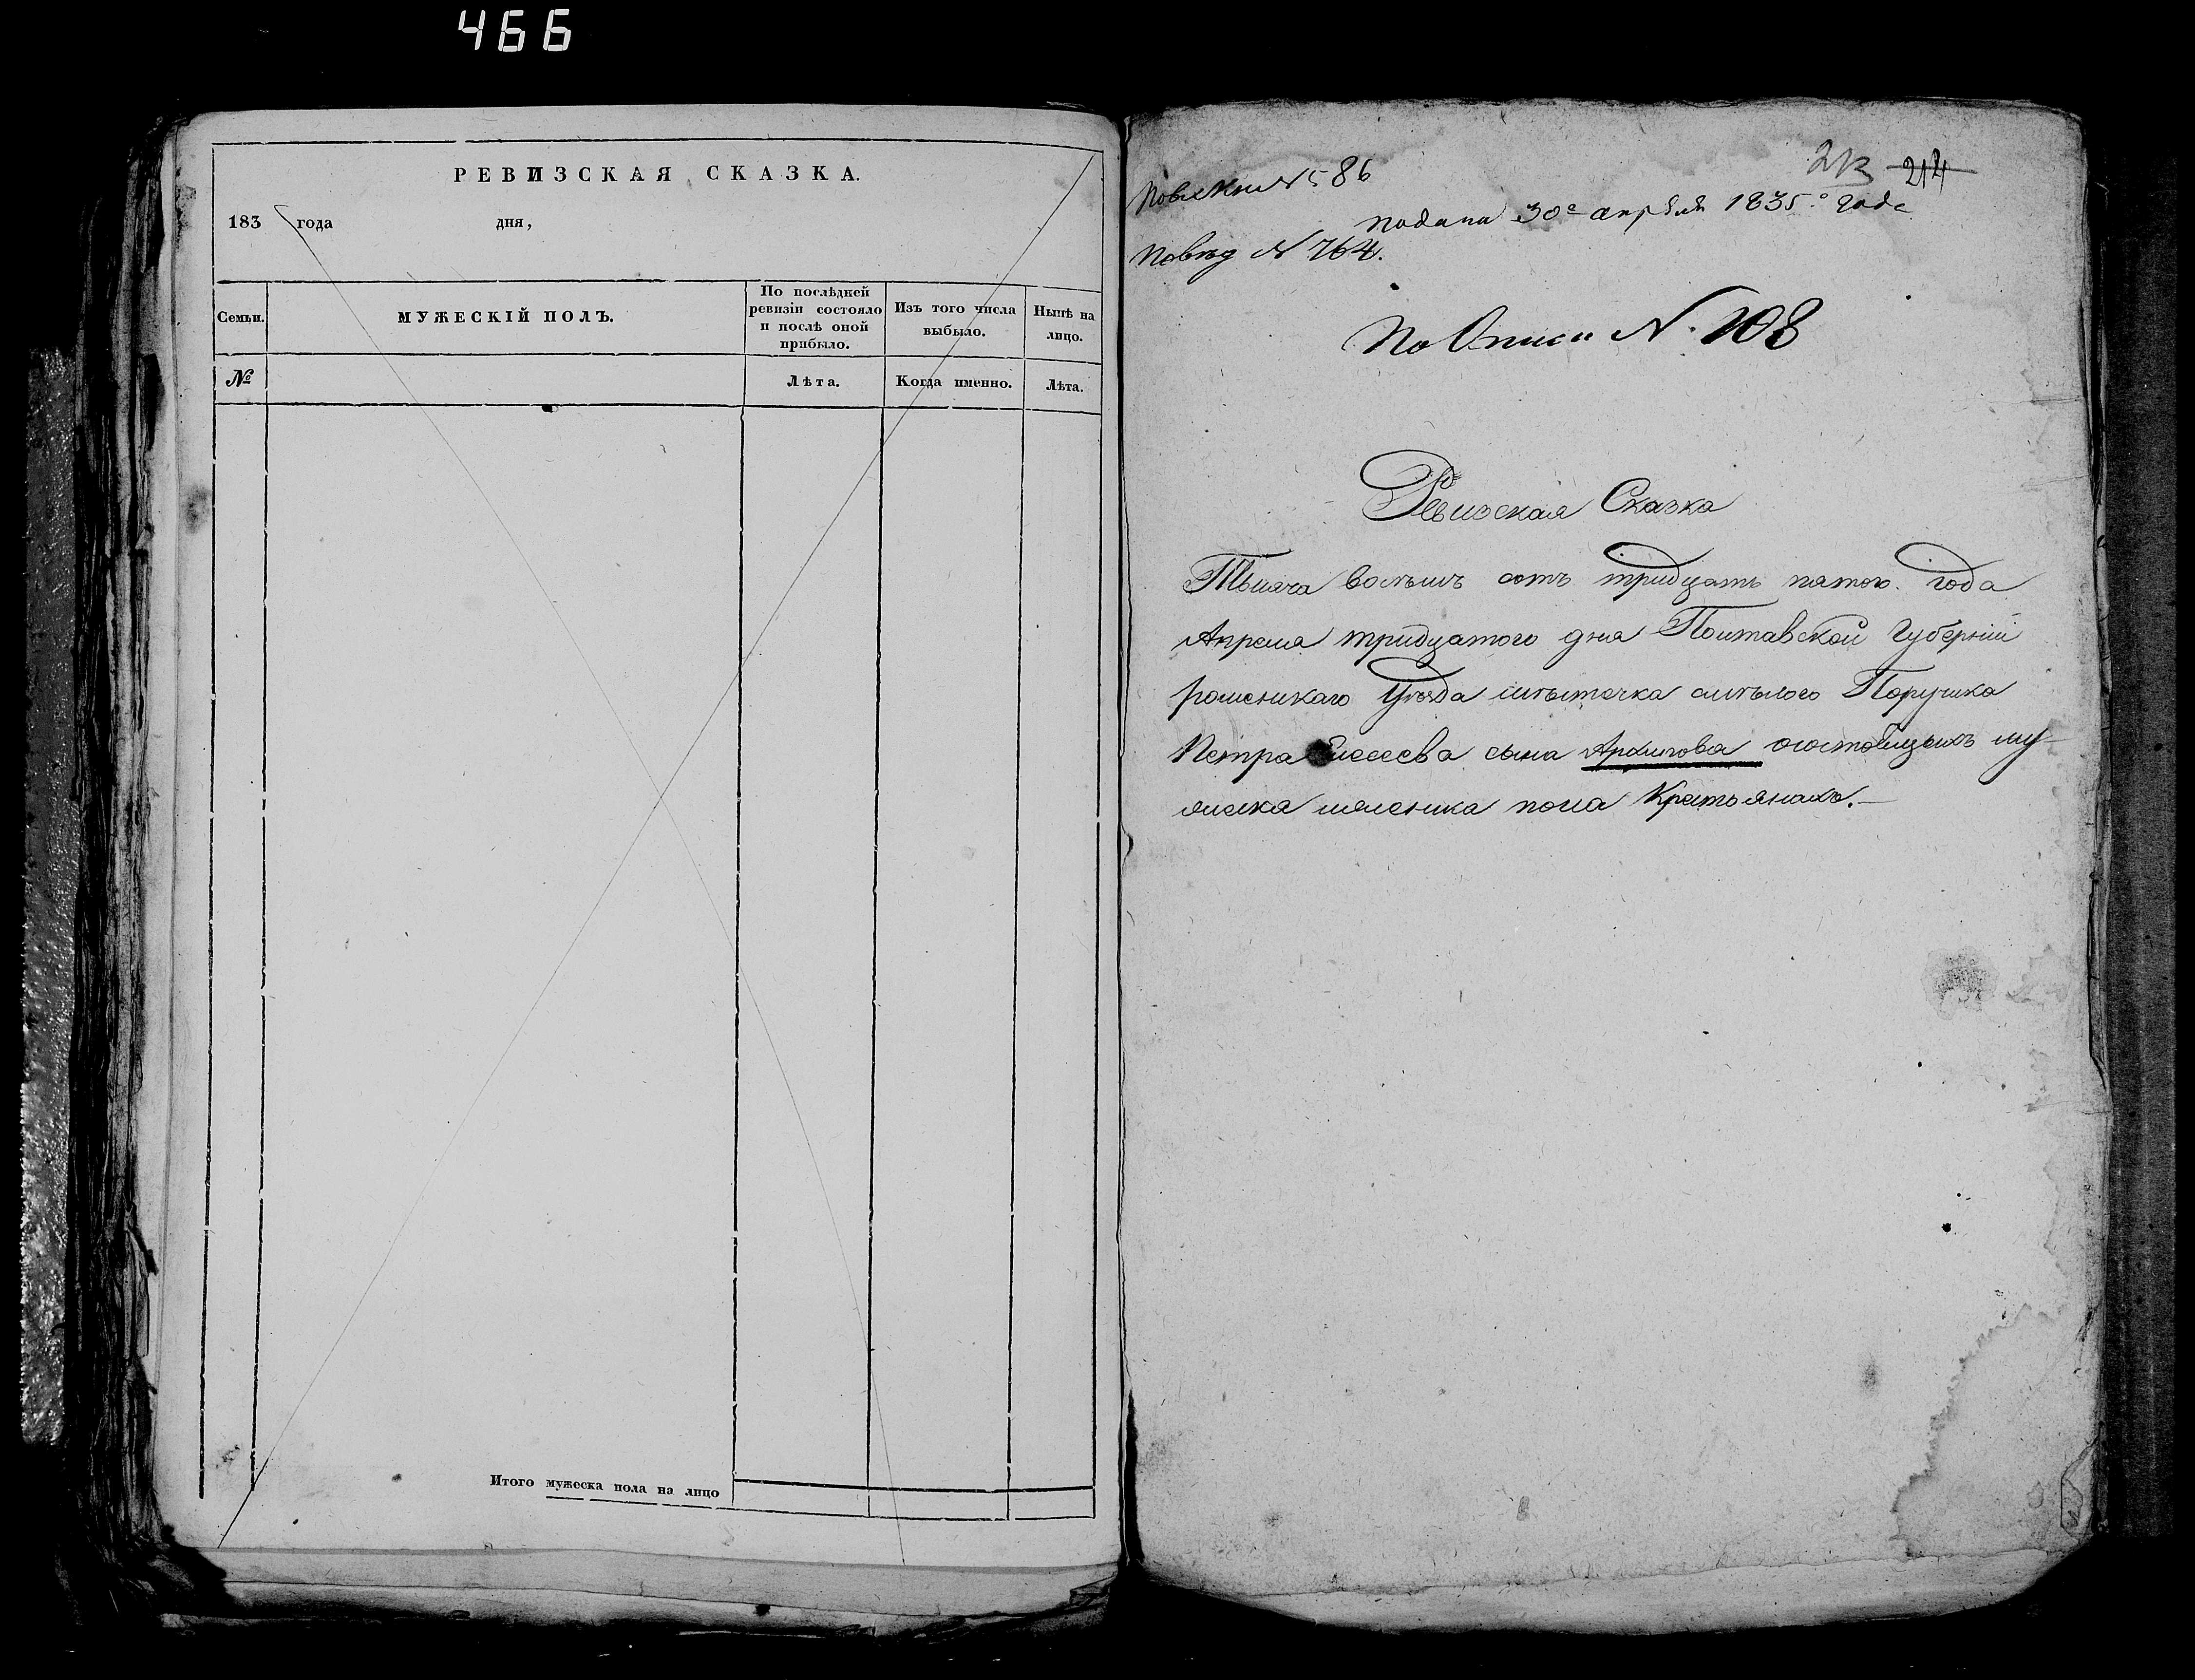 466
РЕВИЗСКАЯ СКАЗКА.
183 года дня,
Семьи.
МУЖЕСКІЙ ПОЛЪ.
По послѣдней
ревизіи состояло
и послѣ оной
прибыло.
Изъ того числа
выбыло.
Нынѣ на
лицо.
№
Лѣта.
Когда именно.
Лѣта.
Итого мужеска пола на лицо
213 214
N 586
подана 30е апрѣля 1835.о года
N 764.
По Описи N. 108
Ревизская Сказка
Тысяча восѣмъ сотъ тридцать пятого. года
Апреля тридцатого дня Полтавской Губерніи
роменскаго Уѣзда мѣстечка смѣлого Поручика
Петра сына Архипова состоящыхъ му-
жеска женска пола Крестьянахъ.—